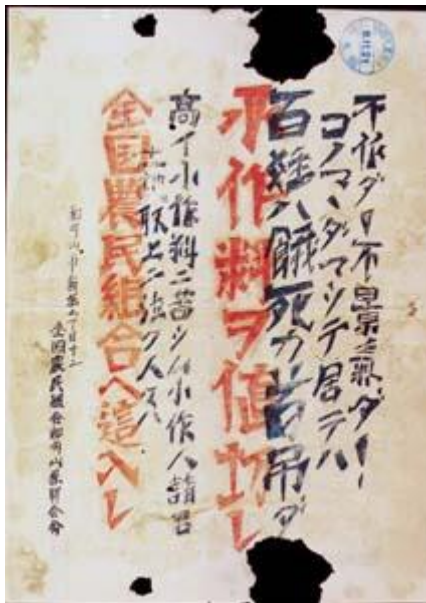 不作ダ!不景気ダ!
コノマヽダマツテ居テハ
百姓ハ餓死カ首吊ダ
小作料ヲ値切レ
高イ小作料ニ苦シム小作人諸君
土地取上ニ泣ク人々ハ
全国農民組合ヘ這入レ
和歌山市
全国農民組合和歌山県聯合会